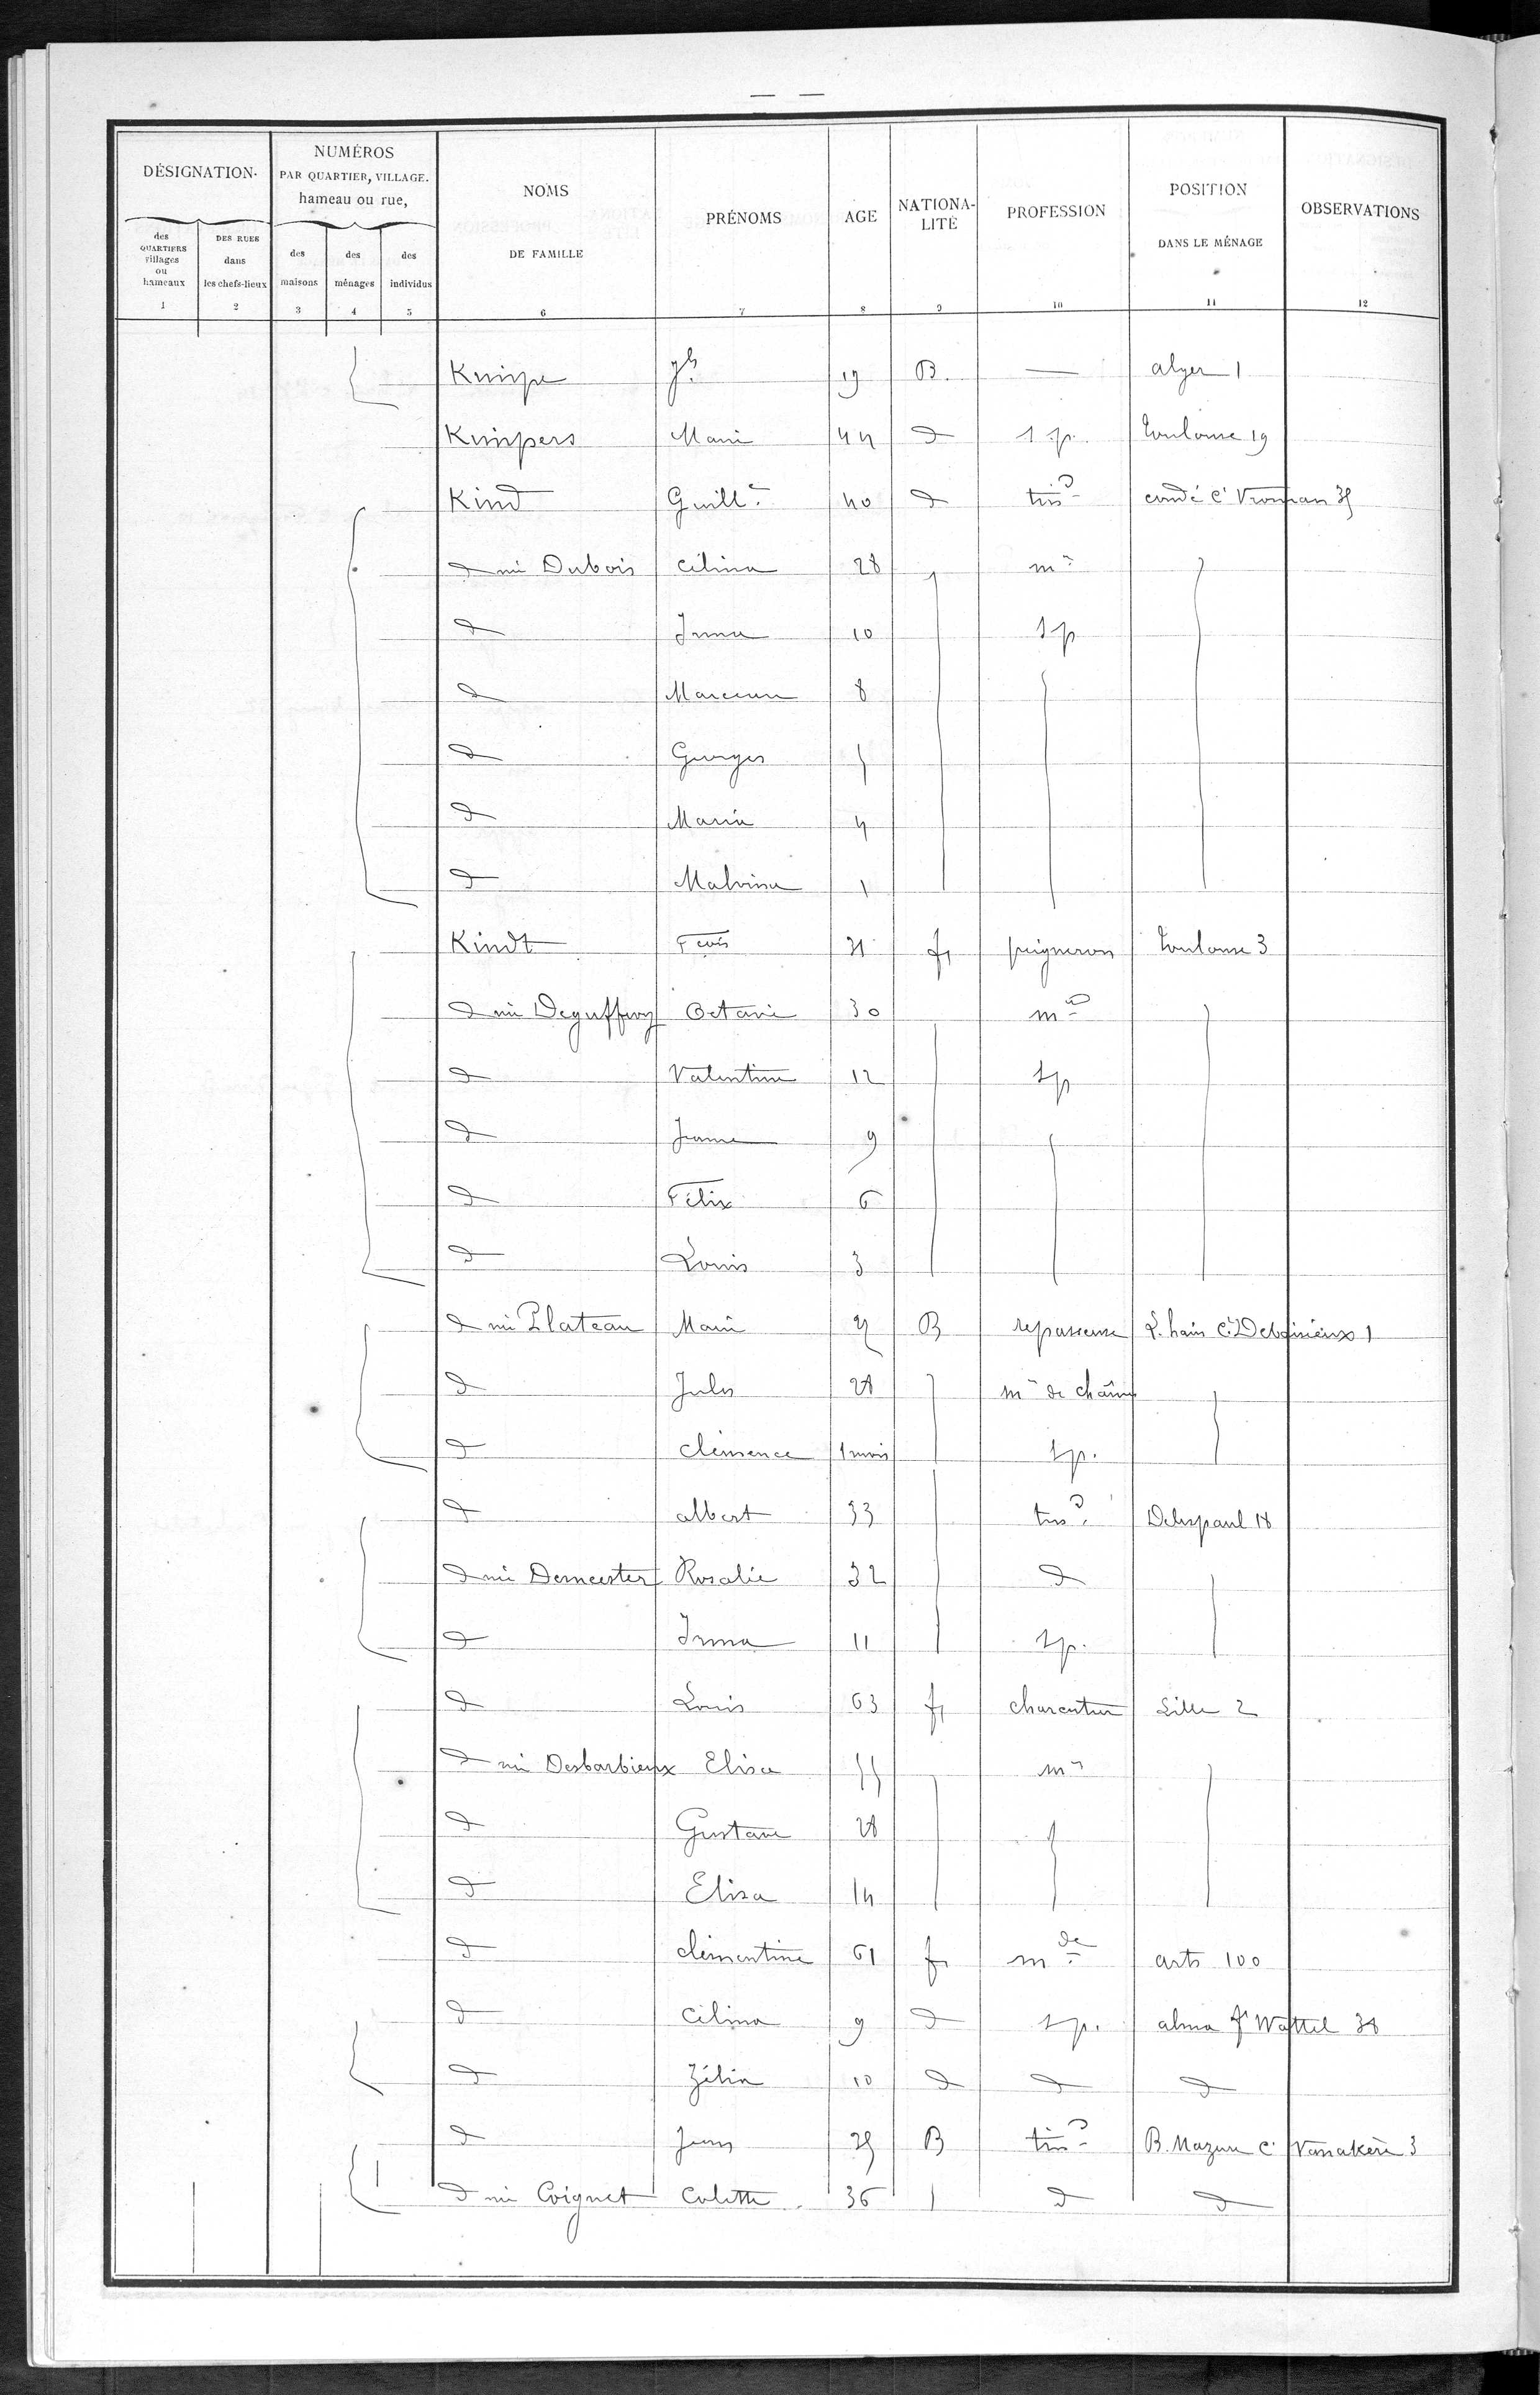 — —
DÉSIGNATION.
NUMÉROS
PAR QUARTIER, VILLAGE.
hameau ou rue,
NOMS
DE FAMILLE
PRÉNOMS
AGE
NATIONA-
LITÉ
PROFESSION
POSITION
DANS LE MÉNAGE
OBSERVATIONS
des
QUARTIERS
villages
ou
hameaux
DES RUES
dans
les chefs-lieux
des
maisons
des
ménages
des
individus
1 2 3 4 5 6 7 8 9 10 11 12
Jh 19 B. — alger 1
Marie 44 d s p. Toulouse 19
Kind 40 d tisd condé cr Vroman 35
d née Dubois Célina 28 mre
d Irma 10 s p
d 8
d Georges 5
d Maria 4
d Malvina 1
Kindt Fcois 31 fr peigneron Toulouse 3
d née Octavie 30
d Valentine 12 s p
d Jeanne 9
d Félix 6
d Louis 3
d née Plateau Marie B repasseuse L. haie cr Deboisieux 1
d Jules 28 md de
d clémence 1 mois s p.
d albert 33 tisd 18
d née Demeester Rosalie 32 d
d Irma 11 s p.
d Louis 63 fr Lille 2
d née Desbarbieux Elisa 55 mre
d Gustave 28
d Elisa 14
d clémentine 61 fr mde arts 100
d Célina 9 d s p. alma ft Wattel 38
d Zélia 10 d d d
d 35 B tisd B. Mazure c. Vanakère 3
d née Coignet Colette 36 d d